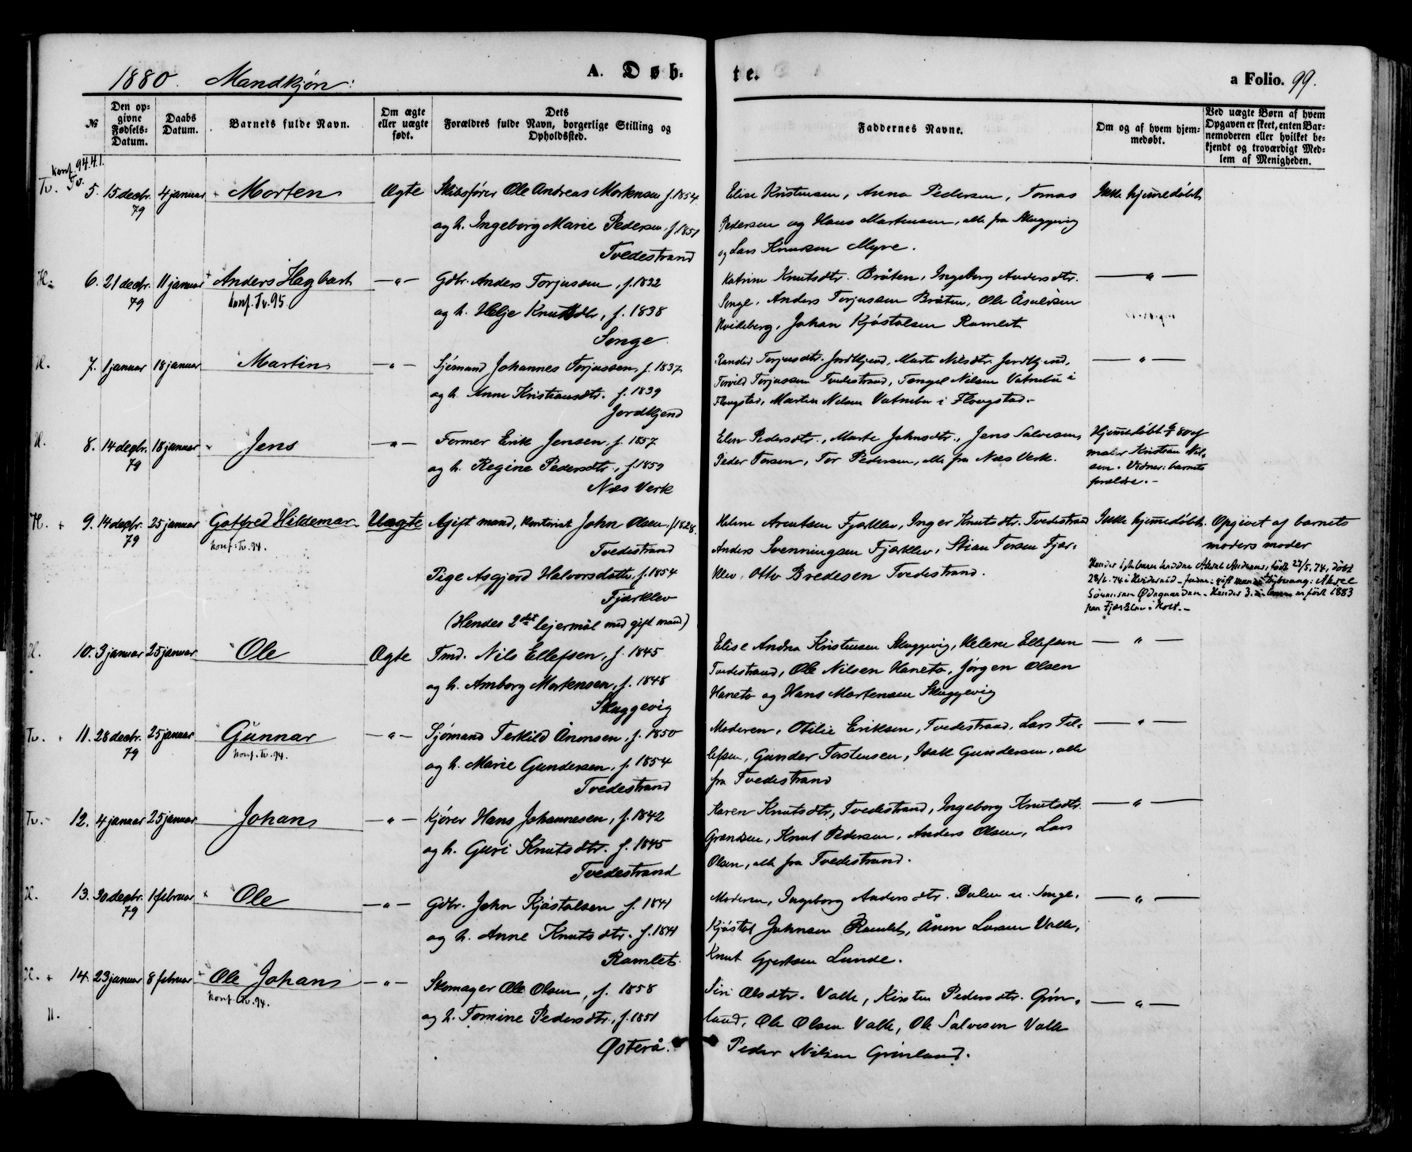 1880. Mandkjøn: A. Døb- te. a Folio. 99.
№ Den opgivne Fødsels-Datum. Daabs Datum. Barnets fulde Navn. Om ægte eller uægte født. Forældres fulde Navn, borgerlige Stilling og Opholdssted. Faddernes Navne. Om og af hvem hjemmedøbt. Ved uægte Børn af hvem Opgaven er skeet, enten Barnemoderen eller hvilket bekjendt og troværdigt Medlem af Menigheden.
konf. 94.4.1.
Tv. Tv. 5. 15 decbr. 79 4 januar Morten Ægte Skibsfører Ole Andreas Mortensen f. 1854
og h. Ingeborg Marie Pedersen, f. 1851
Tvedestrand
Elise Kristensen, Anna Pedersen, Tomas
Pedersen og Hans Martensen, alle fra Skuggevig
og Lars Knutsen Myre.
Ikke hjemmedøbt
H. 6. 21 decbr. 79 11 januar Anders Hagbart — " — Gdbr. Anders Torjussen, f. 1832
konf. Tv. 95
og h. Helje Knutsdtr., f. 1838
Songe
Katrine Knutsdtr. Bråten, Ingeborg Andersdtr.
Songe, Anders Torjussen Bråten, Ole Åsulvsen
Kveideberg, Johan Kjøstolsen Ramlet.
— " —
H. 7. 1 januar 18 januar Martin — " — Sjømand Johannes Torjussen, f. 1837
og h. Anne Kristiansdtr. f. 1839
Jordkjend
Randid Torjusdtr. Jordkjend, Marte Nilsdtr. Jordkjend,
Torvild Torjussen Tvedestrand, Tengel Nilsen Vatnebu i
Flougstad, Martin Nilsen Vatnebu i Flougstad.
— " —
H. 8. 14 decbr. 79 18 januar Jens — " — Former Erik Jensen, f. 1857
og h. Regine Pedersdtr., f. 1859
Næs Verk
Elen Pedersdtr., Marte Johnsdtr., Jens Salvesen,
Peder Torsen, Tor Pedersen, alle fra Næs Verk.
Hjemmedøbt 80 af
maler Kristian Nil-
sen. Vidner: barnets
forældre.
H. 9. 14 decbr. 79 25 januar Gotfred Hildemar Uægte Agift mand, kontorist John Olsen, f. 1828.
konf. Tv. 94.
Tvedestrand
Pige Asgjerd Halvorsdatter, f. 1854
Fjærklev
(Hendes 2det leiermål med gift mand)
Helene Arentsen Fjærklev, Inger Knutsdtr. Tvedestrand
Anders Svenningsen Fjærklev, Stian Torsen Fjær-
klev, Otto Bredesen Tvedestrand.
Ikke hjemmedøbt. Opgivet af barnets
moders moder
H. 10. 3 januar 25 januar Ole Ægte Tmd. Nils Ellefsen, f. 1845
og h. Amborg Mortensen, f. 1848
Skuggevig
Elise Andrea Kristensen Skuggevig, Helene Ellefsen
Tvedestrand, Ole Nilsen Haneto, Jørgen Olsen
Haneto og Hans Martensen Skuggevig
— " —
Tv. 11. 28 decbr. 79 25 januar Gunnar — " — Sjømand Terkild Aronsen, f. 1850
konf. Tv. 94.
og h. Marie Gundersen, f. 1854
Tvedestrand
Moderen, Otilie Eriksen, Tvedestrand, Lars Tel-
lefsen, Gunder Tostensen, Isak Gundersen, alle
fra Tvedestrand
— " —
Tv. 12. 4 januar 25 januar Johan — " — Kjører Hans Johannesen, f. 1842
og h. Guri Knutsdtr. f. 1845
Tvedestrand
Karen Knutsdtr, Tvedestrand, Ingeborg Knutsdtr.
Grændsen, Knut Pedersen, Anders Olsen, Lars
Olsen, alle fra Tvedestrand.
— " —
H. 13. 30 decbr. 79 1 februar Ole — " — Gdbr. John Kjøstolsen f. 1841
og h. Anne Knutsdtr. f. 1844
Ramlet.
Moderen, Ingeborg Andersdtr. Dalen u. Songe,
Kjøstol Johnsen Ramlet, Ånon Larsen Valle,
Knut Gjertsen Lunde.
— " —
H. 14. 23 januar 8 februar Ole Johan — " — Skomager Ole Olsen, f. 1858
konf. Tv. 94.
11.
og h. Tomine Pedersdtr, f. 1851
Østerå.
Siri Olsdtr. Valle, Kirsten Pedersdtr. Grøn-
land, Ole Olsen Valle, Ole Salvesen Valle
Peder Nilsen Grønland.
— " —